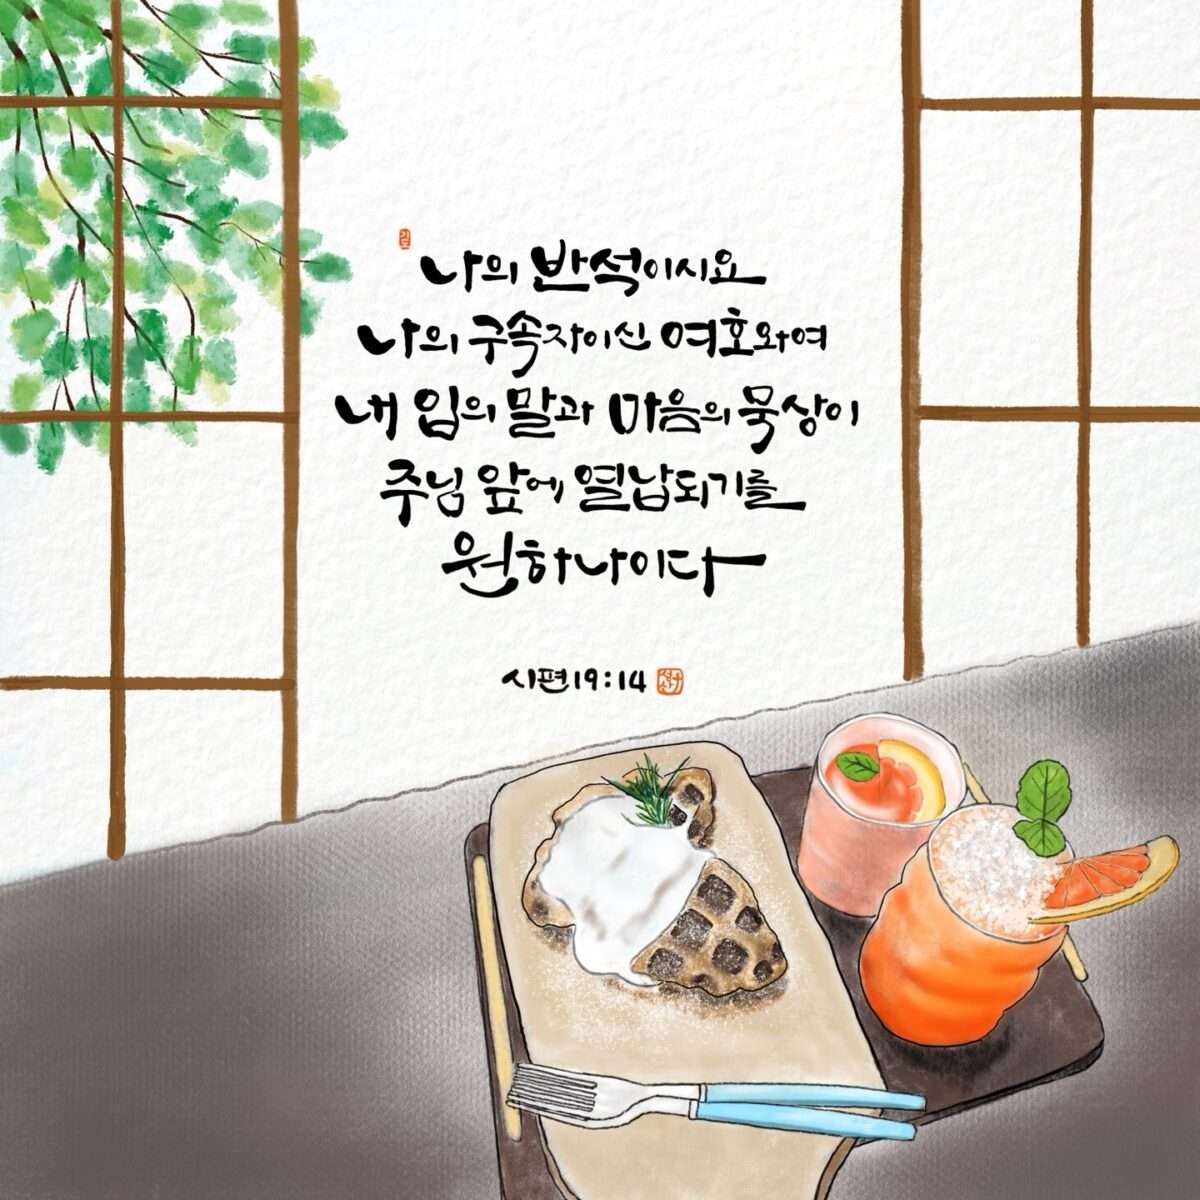 기도
나의 반석이시요
나의 구속자이신 여호와여
내 입의 말과 마음의 묵상이
주님 앞에 열납되기를
원하나이다
시편19:14